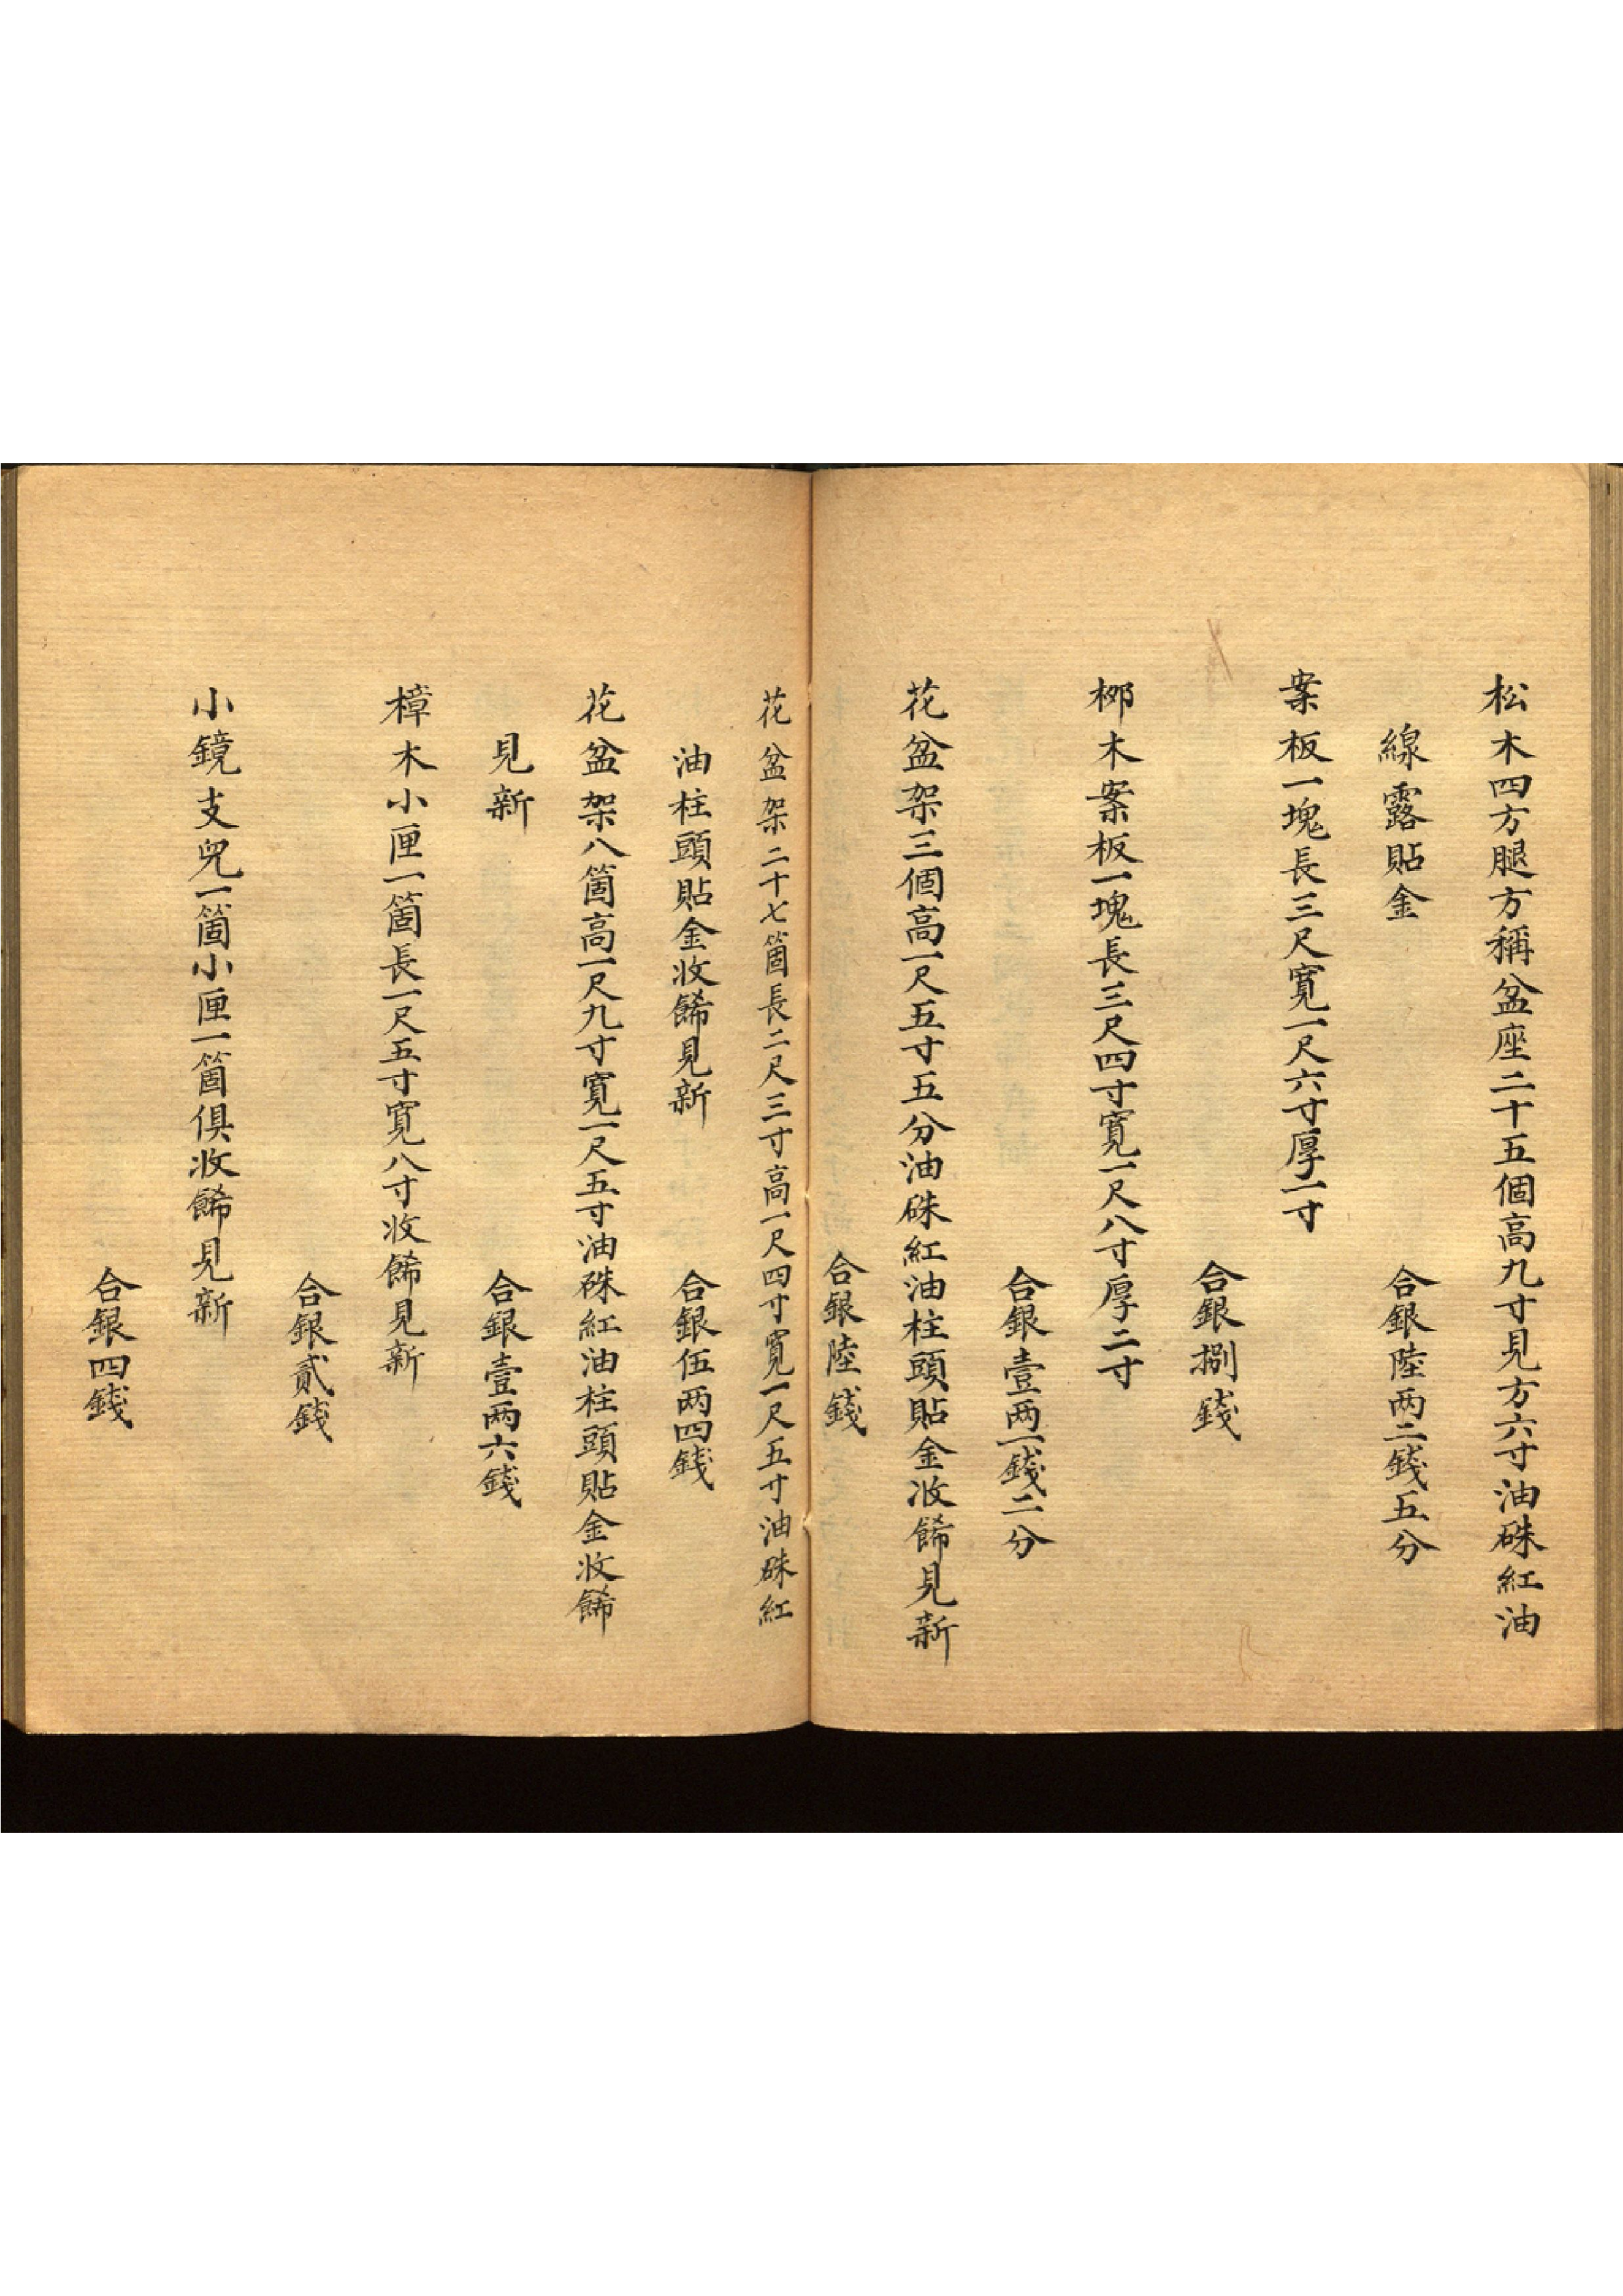 松木四方腿方稱盆座二十五個高九寸見方六寸油硃紅油
線露貼金
合銀陸两二錢五分
案板一塊長三尺寬一尺六寸厚一寸
合銀捌錢
柳木案板一塊長三尺四寸寬一尺八寸厚二寸
合銀壹两一錢二分
花盆架三個高一尺五寸五分油硃紅油柱頭貼金收餙見新
合銀陸錢
花盆架二十七箇長二尺三寸高一尺四寸寬一尺五寸油硃紅
油柱頭貼金收餙見新
合銀伍两四錢
花盆架八箇高一尺九寸寬一尺五寸油硃紅油柱頭貼金收餙
見新
合銀壹两六錢
樟木小匣一箇長一尺五寸寬八寸收餙見新
合銀貳錢
小鏡支兒一箇小匣一箇俱收餙見新
合銀四錢